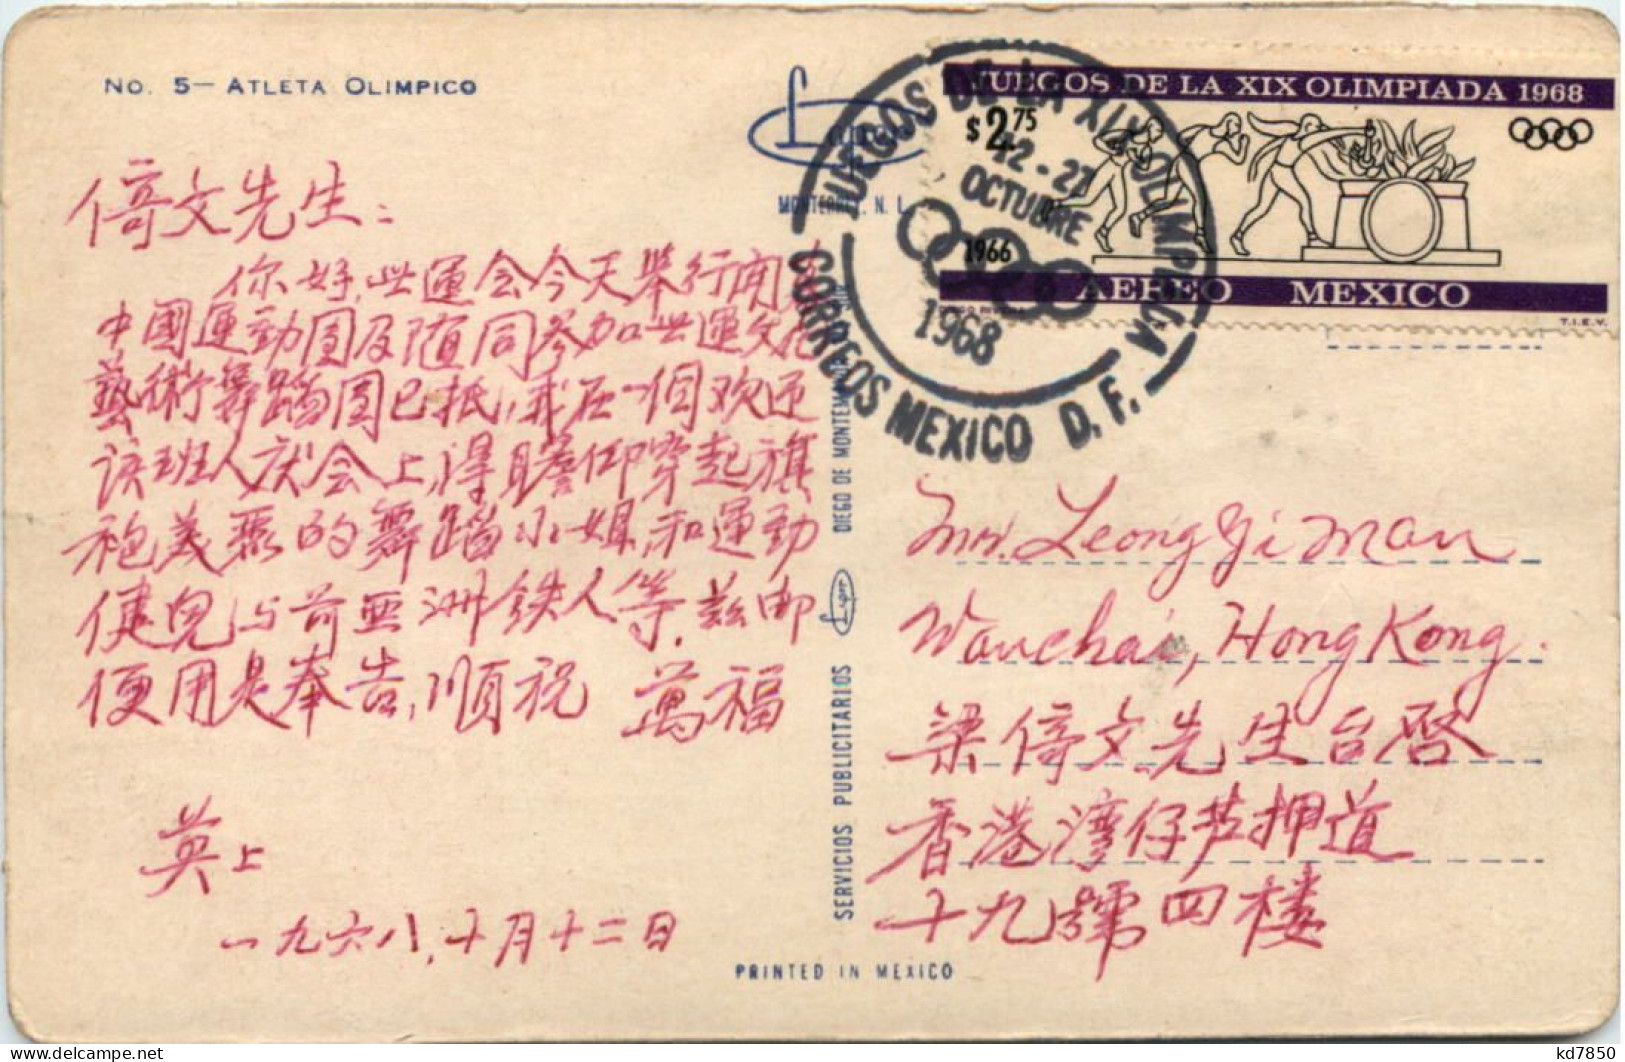 No. 5— ATLETA OLIMPICO
倚文先生：
你好，世運会今天舉行開幕
中國運動團及隨同參加世運文化
藝術舞蹈團已抵，我在一個欢迎
該班人伏会上，得瞻仰穿起旗
袍美麗的舞蹈小姐，和運動
健兒与前亚洲鉄人等，茲郵
便用是奉告，順祝 萬福
英上
一九六八，十月十二日
MONTERREY, N. L.
SERVICIOS PUBLICITARIOS
DIEGO DE MONTEM
PRINTED IN MEXICO
JUEGOS DE LA XIX OLIMPIADA 1968
$2.75
1966
AEREO MEXICO
T.I.E.V.
JUEGOS DE LA XIX OLIMPIADA
12-27
OCTUBRE
1968
CORREOS MEXICO D. F.
Mr. Leong Yi Man
Wanchai, Hong Kong.
梁倚文先生台啓
香港湾仔芦押道
十九號四楼
kd7850